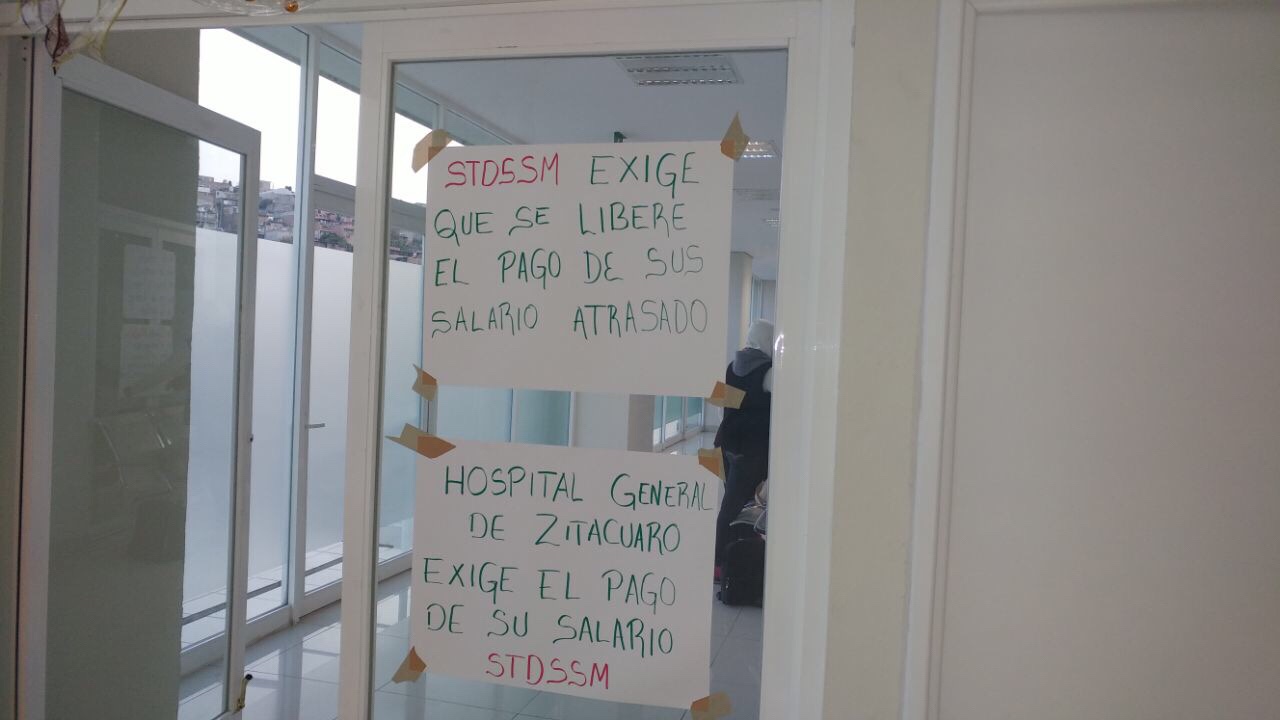 STDSSM EXIGE
QUE SE LIBERE
EL PAGO DE SUS
SALARIO ATRASADO
HOSPITAL GENERAL
DE ZITACUARO
EXIGE EL PAGO
DE SU SALARIO
STDSSM